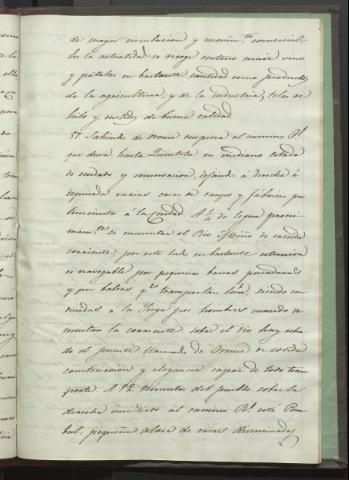 de mayor circulacion y movim.to comercial.
En la actualidad se recoge centeno maiz vino
y patatas en bastante cantidad como productos
de la agricultura, y de la industria, telas de
hilo y curtidos de buena calidad.
57. Saliendo de Orense empieza el camino R.l
que dura hasta en mediano estado
de cuidado y conservacion, dejando á derecha é
izquierda varias casas de campo y fábricas per
tenecientes á la Ciudad. A ¼ de legua procsi
mam.te se encuentra el Rio Miño de caudal
corriente, por este lado en bastante estension
es navegable por pequeñas barcas pescadoras
y por balsas q.e transportan leña, siendo con
ducidas á la Sirga por hombres cuando re
montan la corriente. Sobre el rio hay esta
do el puente llamado de Orense de solida
construccion y elegancia capaz de todo tran
porte. A 12 minutos del pueblo sobre la
derecha inmediato al camino R.l está Pon
bal, pequeña aldea de casas diseminadas